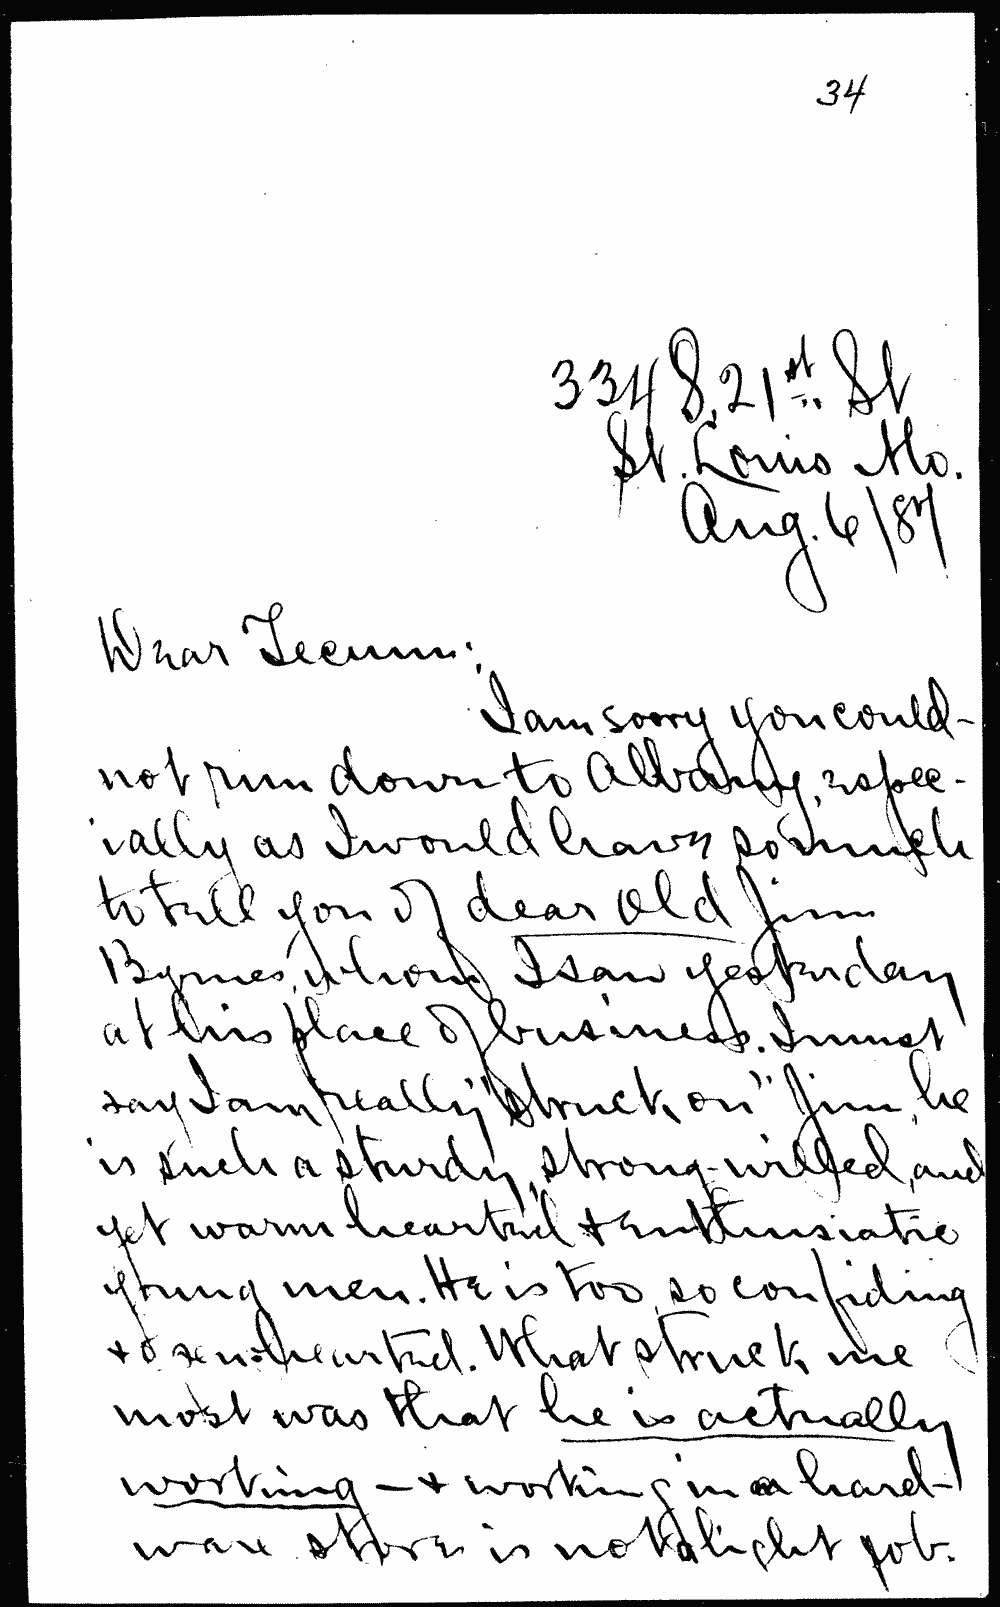 34
334 S. 21st St
St. Louis Mo.
Aug. 6/87
Dear Tecum:
I am sorry you could-
not run down to Albany, espec-
ially as I would have so much
to tell you of dear old Jim
Byrnes, whom I saw yesterday
at his place of business. I must
say I am really "struck on" Jim, he
is such a sturdy, strong-willed, and
yet warm hearted & enthusiatic
young men. He is too so confiding
& open-hearted. What struck me
most was that he is actually
working — & working in a hard-
ware store is not a light job.